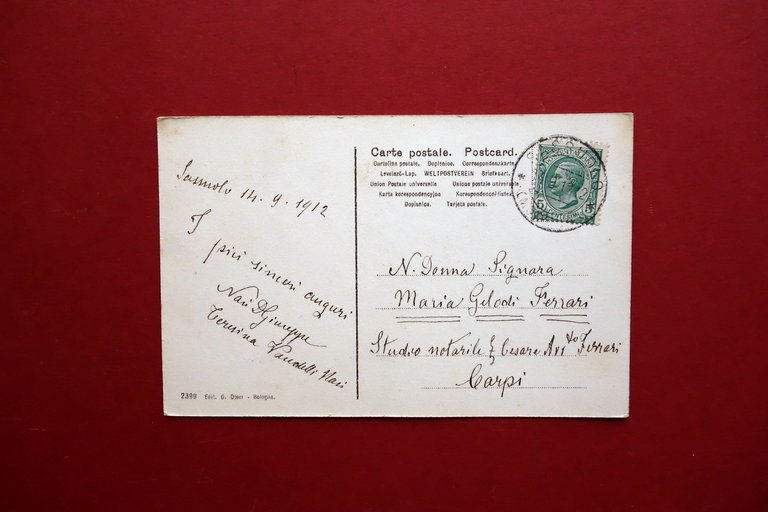 Sassuolo 14.9.1912
I più sinceri auguri
Nasi D Giuseppe
Teresina Vandelli Nasi
2399 Edit. G. Dieri - Bologna.
Carte postale. Postcard.
Cartolina postale. Dopisnice. Correspondenzkarte.
Levelező-Lap. WELTPOSTVEREIN Briefkaart.
Union Postale universelle Unione postale universale.
Karta korespondencyjna Korespondencni listek.
Dopisnica. Tarjeta postale.
N. Donna Signara
Maria Gilodi Ferrari
Studio notarile Cesare Avv.to Ferrari
Carpi
5 5